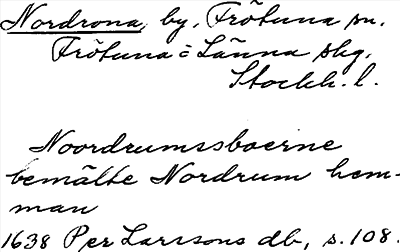 Nordrona, by, Frötuna sn.
Frötuna o Länna skg,
Stockh. l.
Noordrumssboerne
bemälte Nordrum hem-
man
1638 Per Larssons db, s. 108.